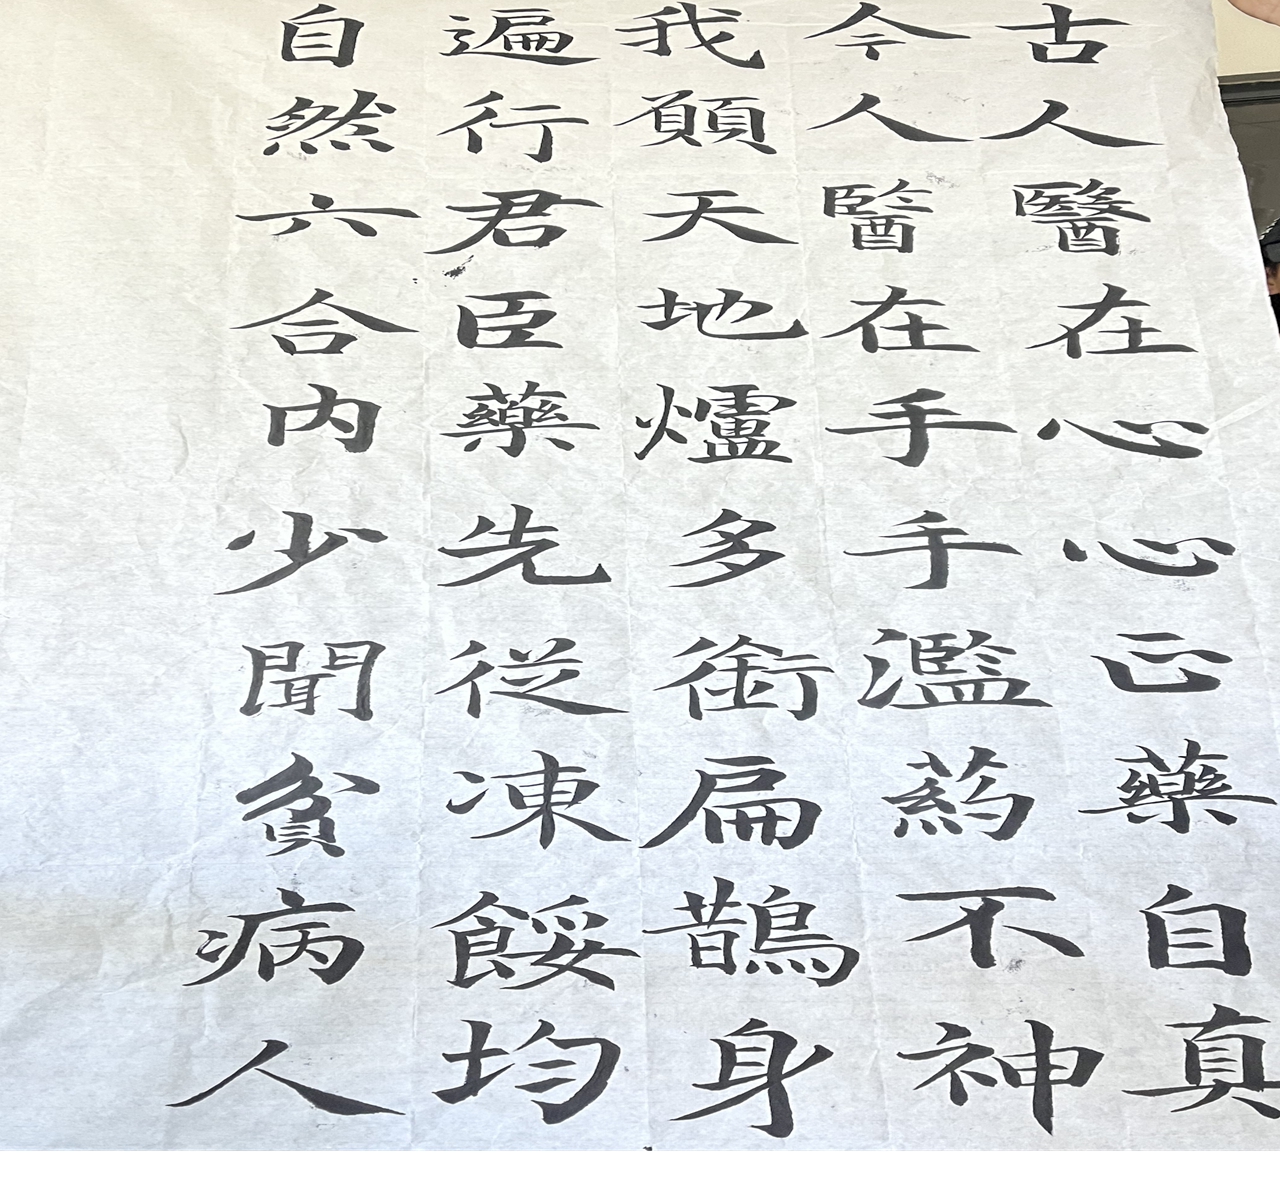 古人醫在心心正藥自真
今人醫在手手濫葯不神
我願天地爐多銜扁鵲身
遍行君臣藥先從凍餒均
自然六合內少聞貧病人